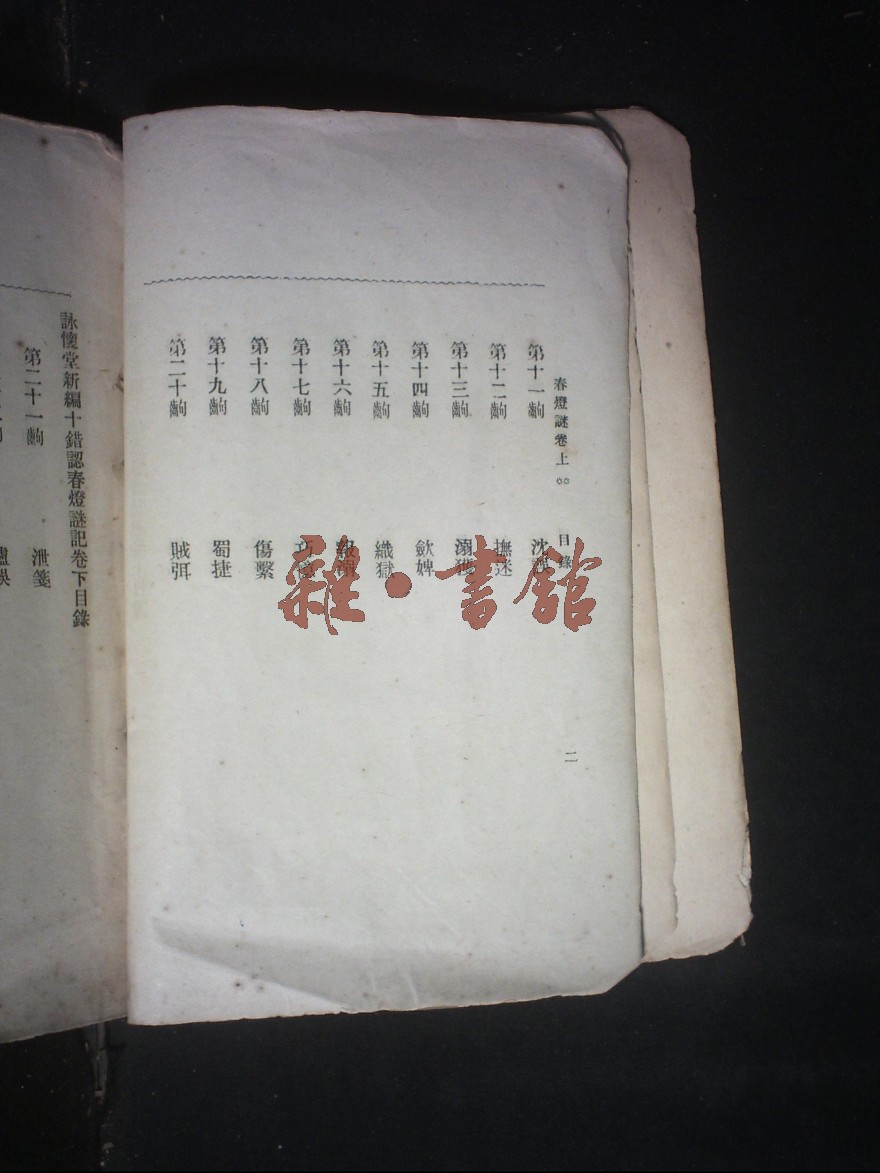 春燈謎卷上 目錄 二
第十一齣 沈
第十二齣 撫迷
第十三齣 溺
第十四齣 歛婢
第十五齣 織獄
第十六齣
第十七齣
第十八齣 傷繫
第十九齣 蜀捷
第二十齣 賊弭
詠懷堂新編十錯認春燈謎記卷下目錄
第二十一齣 泄箋
雜·書館